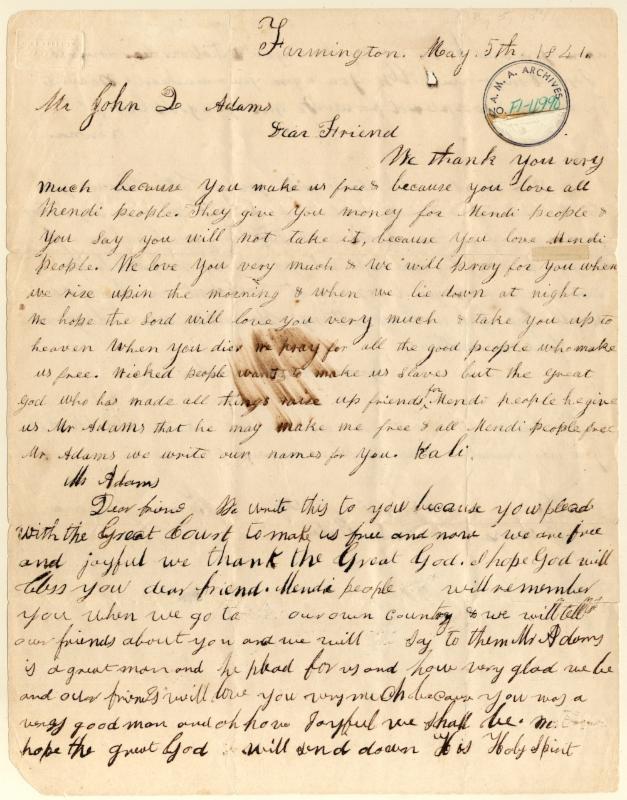 Farmington. May. 5th. 1841.
A. M. A. ARCHIVES
NO. F1-4998
Mr John Q Adams
Dear Friend
We thank you very
much because you make us free & because you love all
Mendi people. They give you money for Mendi people &
you say you will not take it, because you love Mendi
people. We love you very much & we will pray for you when
we rise up in the morning & when we lie down at night.
We hope the Lord will love you very much & take you up to
heaven when you die. We pray for all the good people who make
us free. Wicked people want to make us slaves but the great
God who has made all things raise up friends for Mendi people he give
us Mr Adams that he may make me free & all Mendi people free
Mr. Adams we write our names for you. Kali.
Mr Adams
Dear friend, We write this to you because you plead
with the Great Court to make us free and now we are free
and joyful we thank the Great God. I hope God will
bless you dear friend. Mendi people will remember
you when we go to our own country & we will tell
our friends about you and we will say to them Mr Adams
is a great man and he plead for us and how very glad we be
and our friends will love you very much because you was a
very good man and oh how joyful we shall be.
hope the great God will send down His Holy Spirit